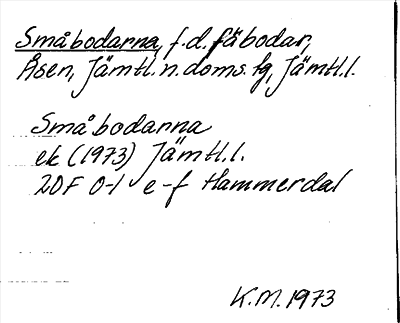 Småbodarna, f.d. fäbodar,
Åsen, Jämtl. n. doms. lg, Jämtl.l.
Småbodarna
ek (1973) Jämtl.l.
20F 0-1 e-f Hammerdal
K.M. 1973